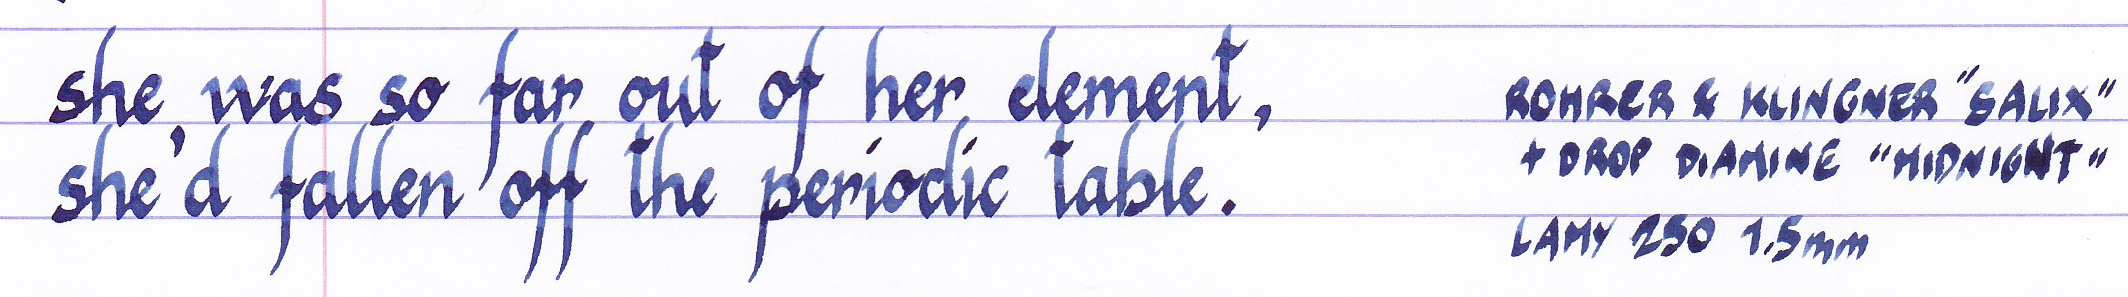 she was so far out of her element,
she'd fallen off the periodic table.
ROHRER & KLINGNER "SALIX"
+ DROP DIAMINE "MIDNIGHT"
LAMY 250 1.5mm